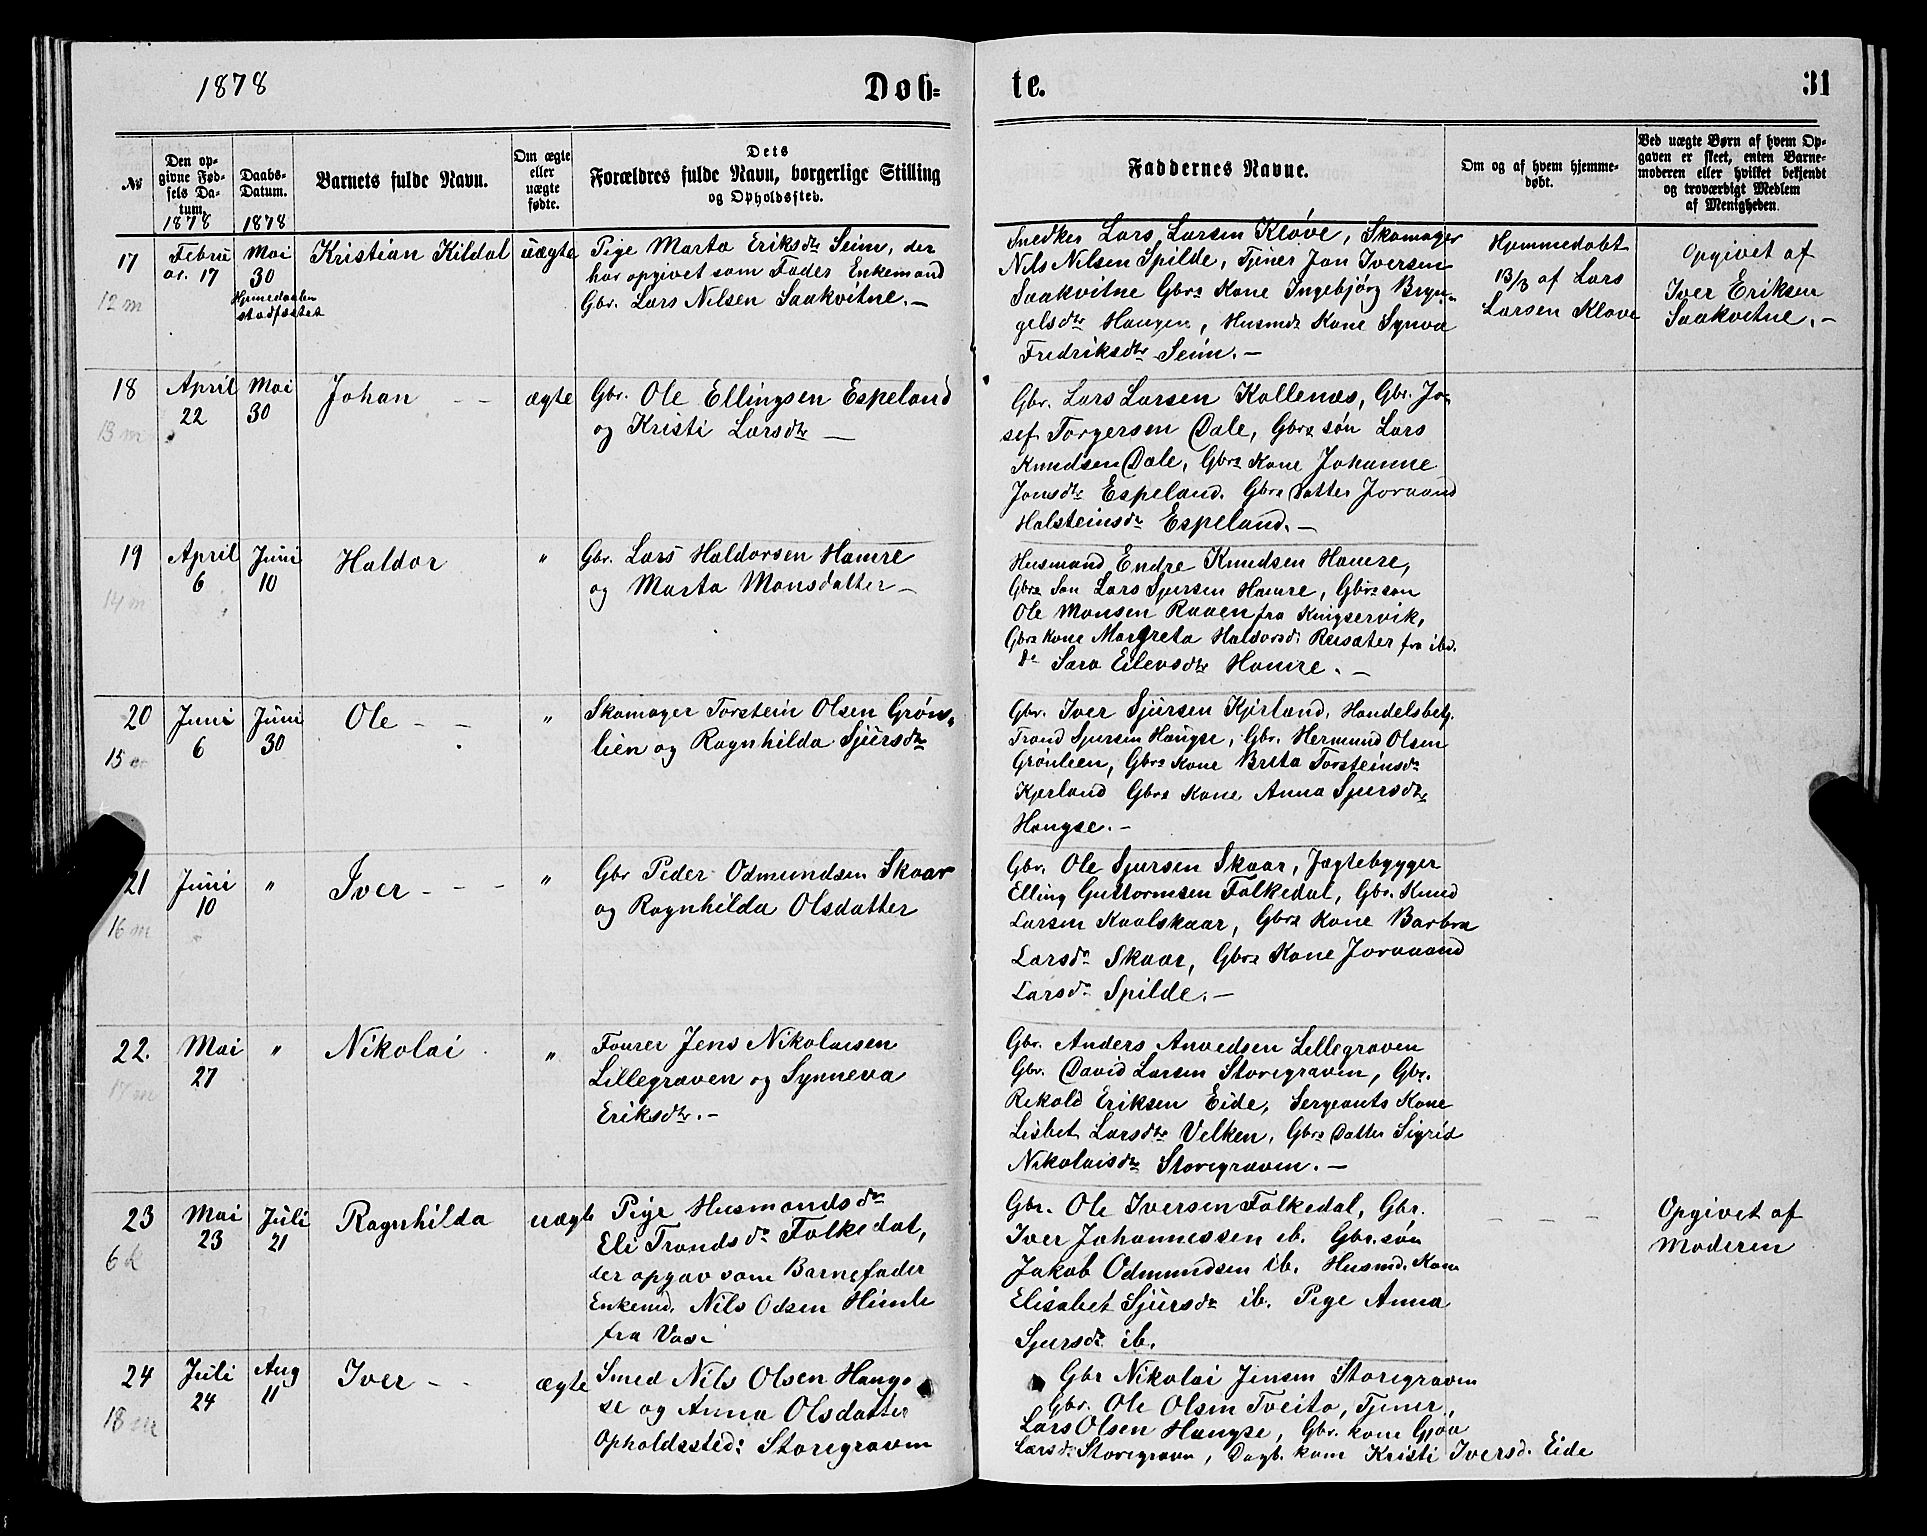 1878
Døb=
te.
31
№
Den op-
givne Fød-
sels Da-
tum.
1878
Daabs-
Datum.
1878
Barnets fulde Navn.
Om ægte
eller
uægte
fødte.
Dets
Forældres fulde Navn, borgerlige Stilling
og Opholdssted.
Faddernes Navne.
Om og af hvem hjemme-
døbt.
Ved uægte Børn af hvem Op-
gaven er skeet, enten Barne-
moderen eller hvilket bekjendt
og troværdigt Medlem
af Menigheden.
17
12 m
Febru
ar. 17
Mai
30
Hjemedaaben
stadfæstet
Kristian Kildal
uægte
Pige Marta Eriksdtr Seim, der
har opgivet som Fader Enkemand
Gbr. Lars Nilsen Saakvitne. —
Snedker Lars Larsen Kløve, Skomager
Nils Nilsen Spilde, Tjener Jan Iversen
Saakvitne Gbrs Kone Ingebjørg Bryn-
gelsdtr Haugen, Husmds Kone Synva
Fredriksdtr Seim. —
Hjemmedøbt
13/3 af Lars
Larsen Kløve
Opgivet af
Iver Eriksen
Saakvitne. —
18
13 m
April
22
Mai
30
Johan — —
ægte
Gbr. Ole Ellingsen Espeland
og Kristi Larsdtr —
Gbr. Lars Larsen Kollenæs, Gbr. Jo-
sef Torgersen Dale, Gbrs søn Lars
Knudsen Dale, Gbrs Kone Johanne
Jonsdtr Espeland. Gbrs Datter Joraand
Halsteinsdr Espeland. —
19
14 m
April
6
Juni
10
Haldor
"
Gbr. Lars Haldorsen Hamre
og Marta Monsdatter —
Husmand Endre Knudsen Hamre,
Gbrs Søn Lars Sjursen Hamre, Gbrs søn
Ole Monsen Raaen fra Kingservik,
Gbrs kone Margreta Haldorsd. Reisæter fra ibd.
do Sara Eilevsdtr Hamre. —
20
15 m
Juni
6
Juni
30
Ole — —
"
Skomager Torstein Olsen Grøn-
lien og Ragnhilda Sjursdtr
Gbr. Iver Sjursen Kjerland, Handelsbetj.
Trond Sjursen Haugse, Gbr. Hermund Olsen
Grønlien, Gbrs Kone Brita Torsteinsdr
Kjerland Gbrs Kone Anna Sjursdtr
Haugse. —
21
16 m
Juni
10
"
Iver — — —
"
Gbr Peder Odmundsen Skaar
og Ragnhilda Olsdatter
Gbr. Ole Sjursen Skaar, Jægtebygger
Elling Guttormsen Folkedal, Gbr. Knud
Larsen Kaalskaar, Gbrs Kone Barbra
Larsdr Skaar, Gbrs Kone Joraaand
Larsdr Spilde. —
22.
17 m
Mai
27
"
Nikolai
"
Fourer Jens Nikolaisen
Lillegraven og Synneva
Eriksdtr. —
Gbr. Anders Anvedsen Lillegraven
Gbr. David Larsen Storegraven, Gbr.
Rekold Eriksen Eide, Sergeants Kone
Lisbet Larsdtr Velken, Gbrs Datter Sigrid
Nikolaisdr Storegraven. —
23
6 k
Mai
23
Juli
21
Ragnhilda
uægte
Pige Husmandsdr
Eli Trondsdr Folkedal,
der opgav som Barnefader
Enkemd. Nils Odsen Himle
fra Voss
Gbr. Ole Iversen Folkedal, Gbr.
Iver Johannessen ib. Gbr. søn
Jakob Odmundsen ib. Husmd. Kone
Elisabet Sjursdr ib. Pige Anna
Sjursdr ib.
— — —
Opgivet af
Moderen
24
18 m
Juli
24
Aug
11
Iver — —
ægte
Smed Nils Olsen Haug-
se og Anna Olsdatter
Opholdssted: Storegraven
Gbr Nikolai Jensen Storegraven
Gbr. Ole Olsen Tveito, Tjener,
Lars Olsen Haugse, Gbr. kone Gjøa
Larsdr Storegraven, Dagb. kone Kristi Iversd. Eide